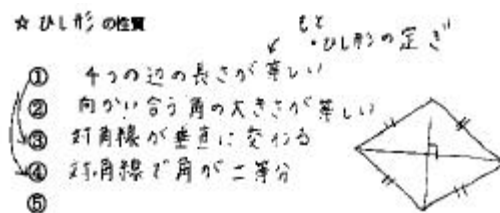 ☆ ひし形の性質
もと
・ひし形の定ぎ
① 4つの辺の長さが等しい
② 向かい合う角の大きさが等しい
③ 対角線が垂直に交わる
④ 対角線で角が二等分
⑤